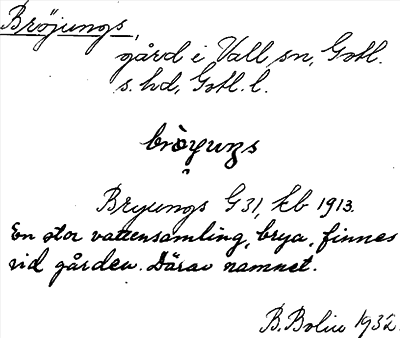 Bröjungs,
gård i Vall sn, Gotl.
s. hd, Gotl. l.
bröyungs
Bryungs G 31, kb 1913.
En stor vattensamling, brya, finnes
vid gården. Därav namnet.
B. Bolin 1932